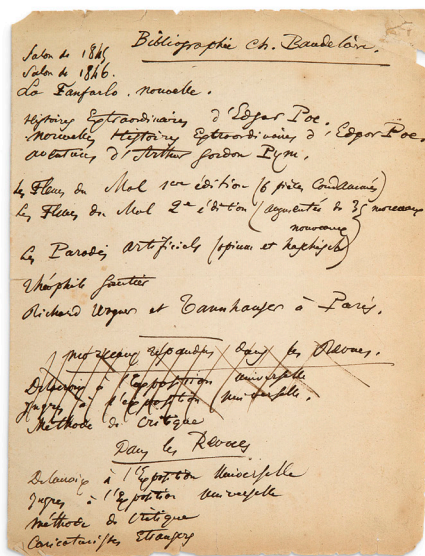 Bibliographie Ch. Baudelaire.
Salon de 1845
Salon de 1846.
La Fanfarlo. nouvelle.
Histoires Extraordinaires d'Edgar Poe.
nouvelles Histoires Extraordinaires d'Edgar Poe.
aventures d'Arthur Gordon Pym.
Les Fleurs du Mal 1ere édition (6 pièces Condamnées)
Les Fleurs du Mal 2e édition (augmentées de 35 morceaux
nouveaux)
Les Paradis artificiels (opium et haschisch)
Théophile Gautier
Richard Wagner et Tannhauser à Paris.
morceaux répandus dans les Revues.
Delacroix à l'Exposition universelle
Ingres à l'exposition universelle.
Méthode de Critique
Dans les Revues
Delacroix à l'Exposition Universelle
Ingres à l'Exposition universelle
Méthode de Critique
Caricaturistes Etrangers